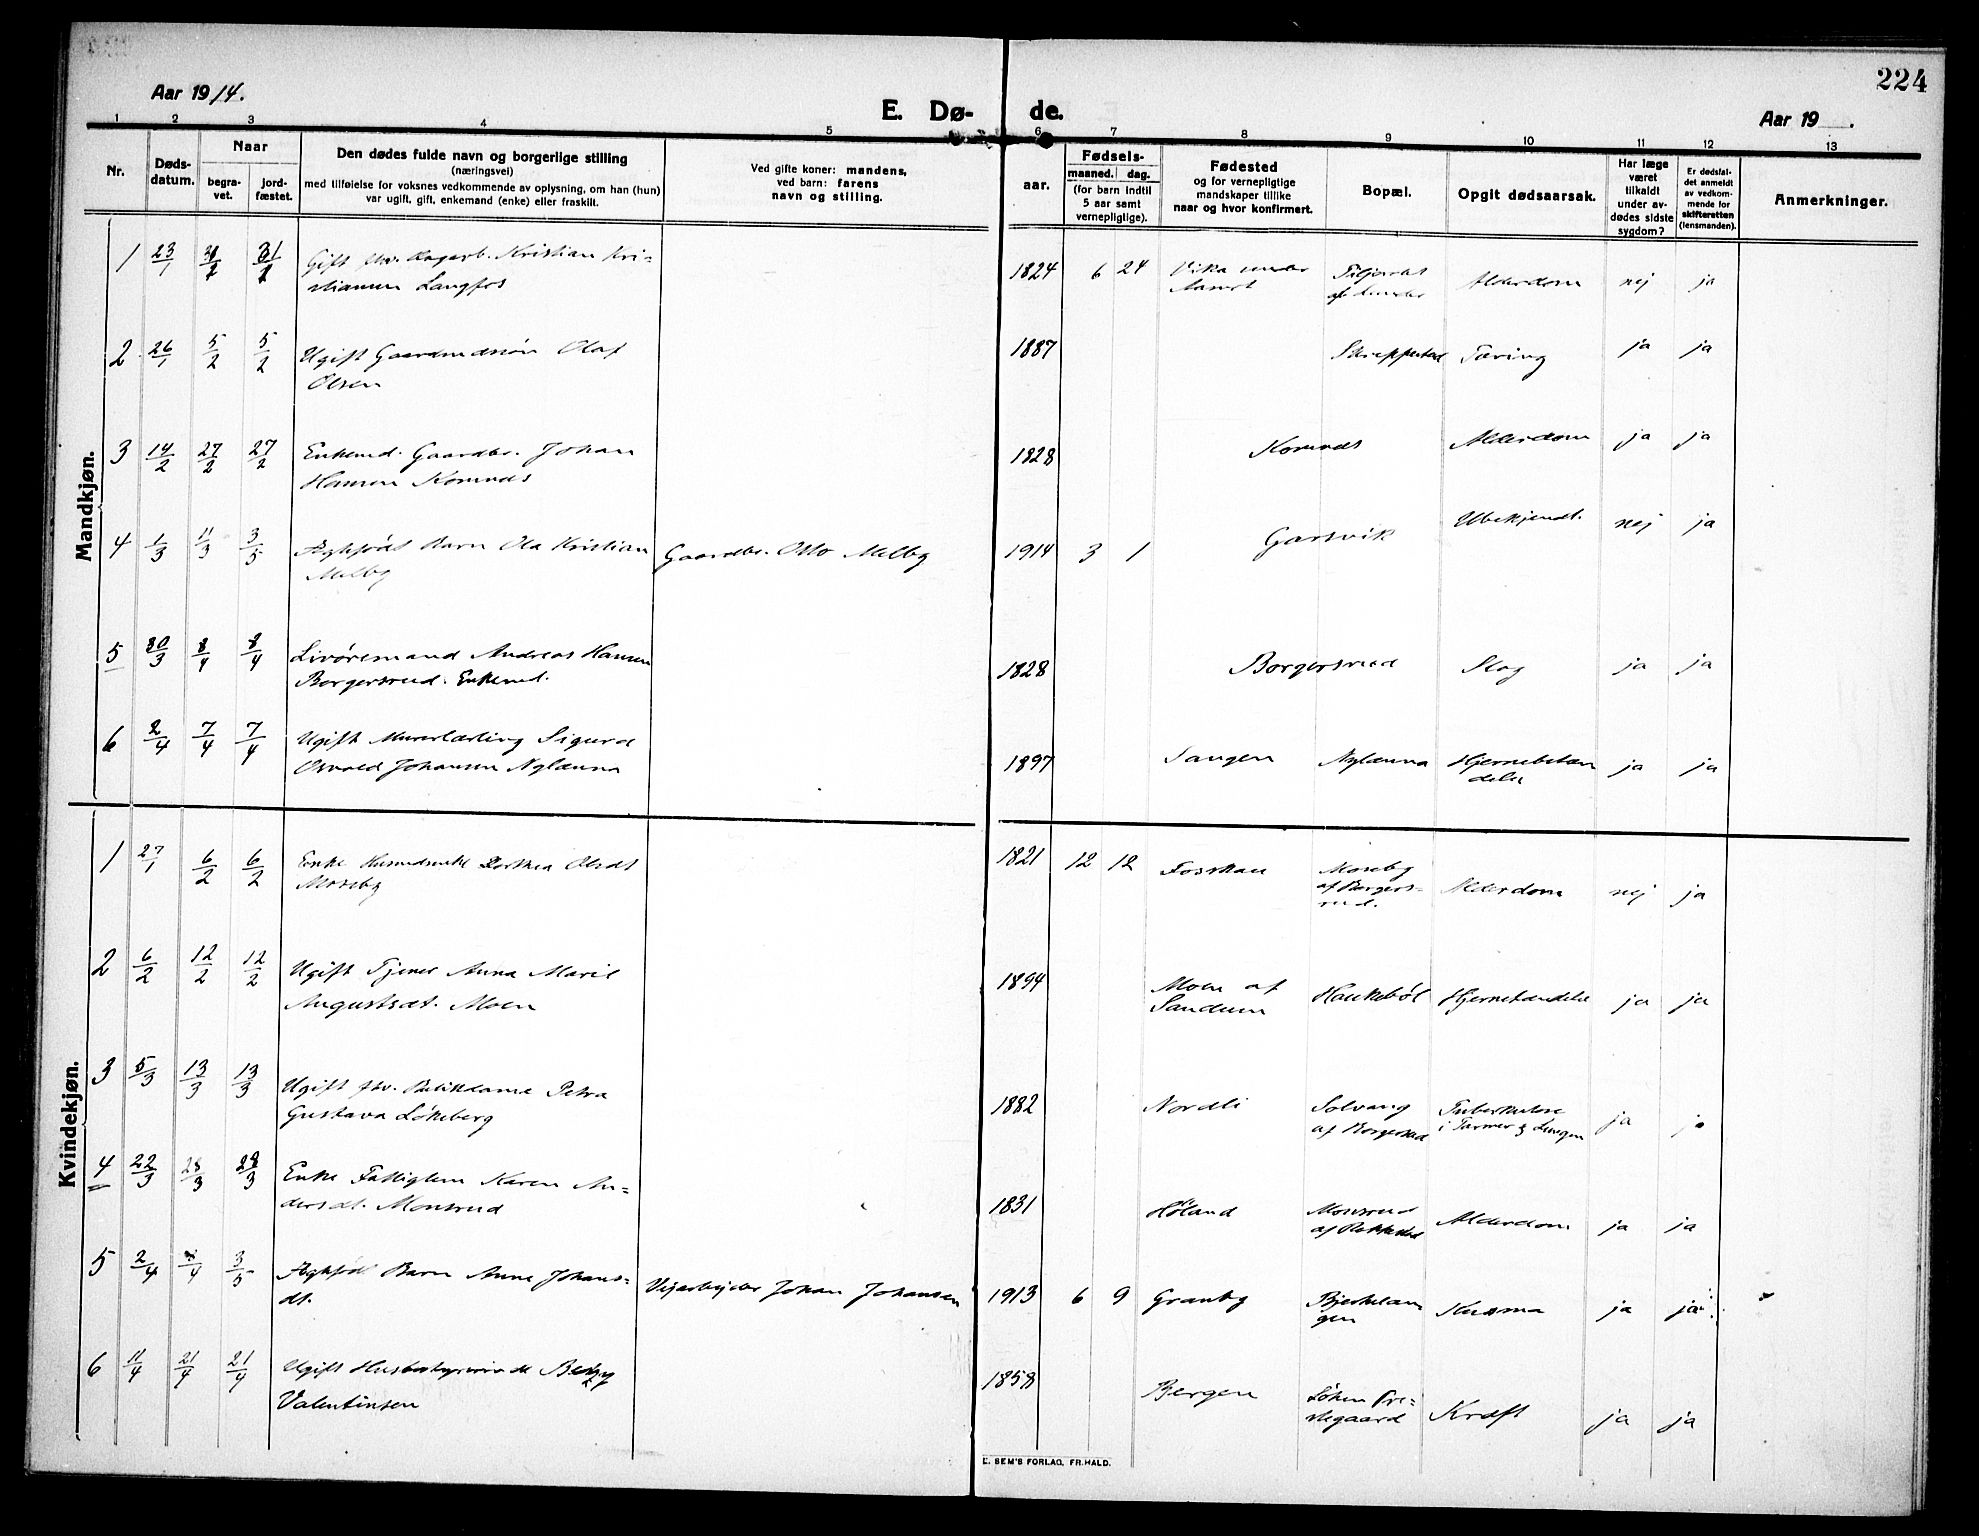 224
Aar 1914.
E. Dø-
de.
Aar 19 .
1 2 3 4 5 6 7 8 9 10 11 12 13
Nr.
Døds-
datum.
Naar
begra-
vet.
jord-
fæstet.
Den dødes fulde navn og borgerlige stilling
(næringsvei)
med tilføielse for voksnes vedkommende av oplysning, om han (hun)
var ugift, gift, enkemand (enke) eller fraskilt.
Ved gifte koner: mandens,
ved barn: farens
navn og stilling.
aar.
Fødsels-
maaned. dag.
(for barn indtil
5 aar samt
vernepligtige).
Fødested
og for vernepligtige
mandskaper tillike
naar og hvor konfirmert.
Bopæl.
Opgit dødsaarsak.
Har læge
været
tilkaldt
under av-
dødes sidste
sygdom?
Er dødsfal-
det anmeldt
av vedkom-
mende for
skifteretten
(lensmanden).
Anmerkninger.
Mandkjøn.
1 23/1 Gift fhv. Kristian Kri-
stiansen Langfos
1824 6 24 Vika under Alderdom nej ja
2 26/1 5/2 5/2 Ugift Gaardmandssøn Olaf
Olsen
1887 Skreppestad Tæring ja ja
3 14/2 27/2 27/2 Enkemd. Gaardbr. Johan
Hansen Komnæs
1828 Komnæs Alderdom ja ja
4 1/3 11/3 3/5 Ægtefødt Barn Ola Kristian
Melby
Gaardbr. Otto Melby
1914 3 1 Garsvik Ubekjendt. nej ja
5 30/3 8/4 8/4 Livøresmand Andreas Hansen
Borgersrud. Enkemd.
1828 Borgersrud Slag ja ja
6 2/4 7/4 7/4 Ugift Murerlærling Sigurd
Osvald Johansen Nylænna
1897 Sangen Nylænna Hjernebetæn
delse ja ja
Kvindekjøn.
1 27/1 6/2 6/2 Enke Husmdsenke Dorthea Olsdt
Moseby
1821 12 12 Fosshau Moseby
af Borgers-
rud. Alderdom nej ja
2 6/2 12/2 12/2 Ugift Tjener Anna Marie
Augustsdt. Moen
1894 Moen af
Sandum Haukebøl Hjernetændelse ja ja
3 5/3 13/3 13/3 Ugift fhv. Butikdame Petra
Gustava Løkeberg
1882 Nordli Solvang
af Borgestad Tuberkulose
i Tarmer & Lungen ja ja
4 22/3 28/3 28/3 Enke Fattiglem Karen An-
dersdt. Monsrud
1831 Høland Monsrud
af Rakkestad Alderdom ja ja
5 2/4 3/5 Ægtefødt Barn Anna Johans-
dt.
Vejarbejder Johan Johansen
1913 6 9 Granby Bjerkelan
gen Krasma ja ja
6 11/4 21/4 21/4 Ugift Husbestyrerinde Betzy
Valentinsen
1858 Bergen Løken Pre-
stegaard Kræft ja ja
E. SEM'S FORLAG, FR.HALD.